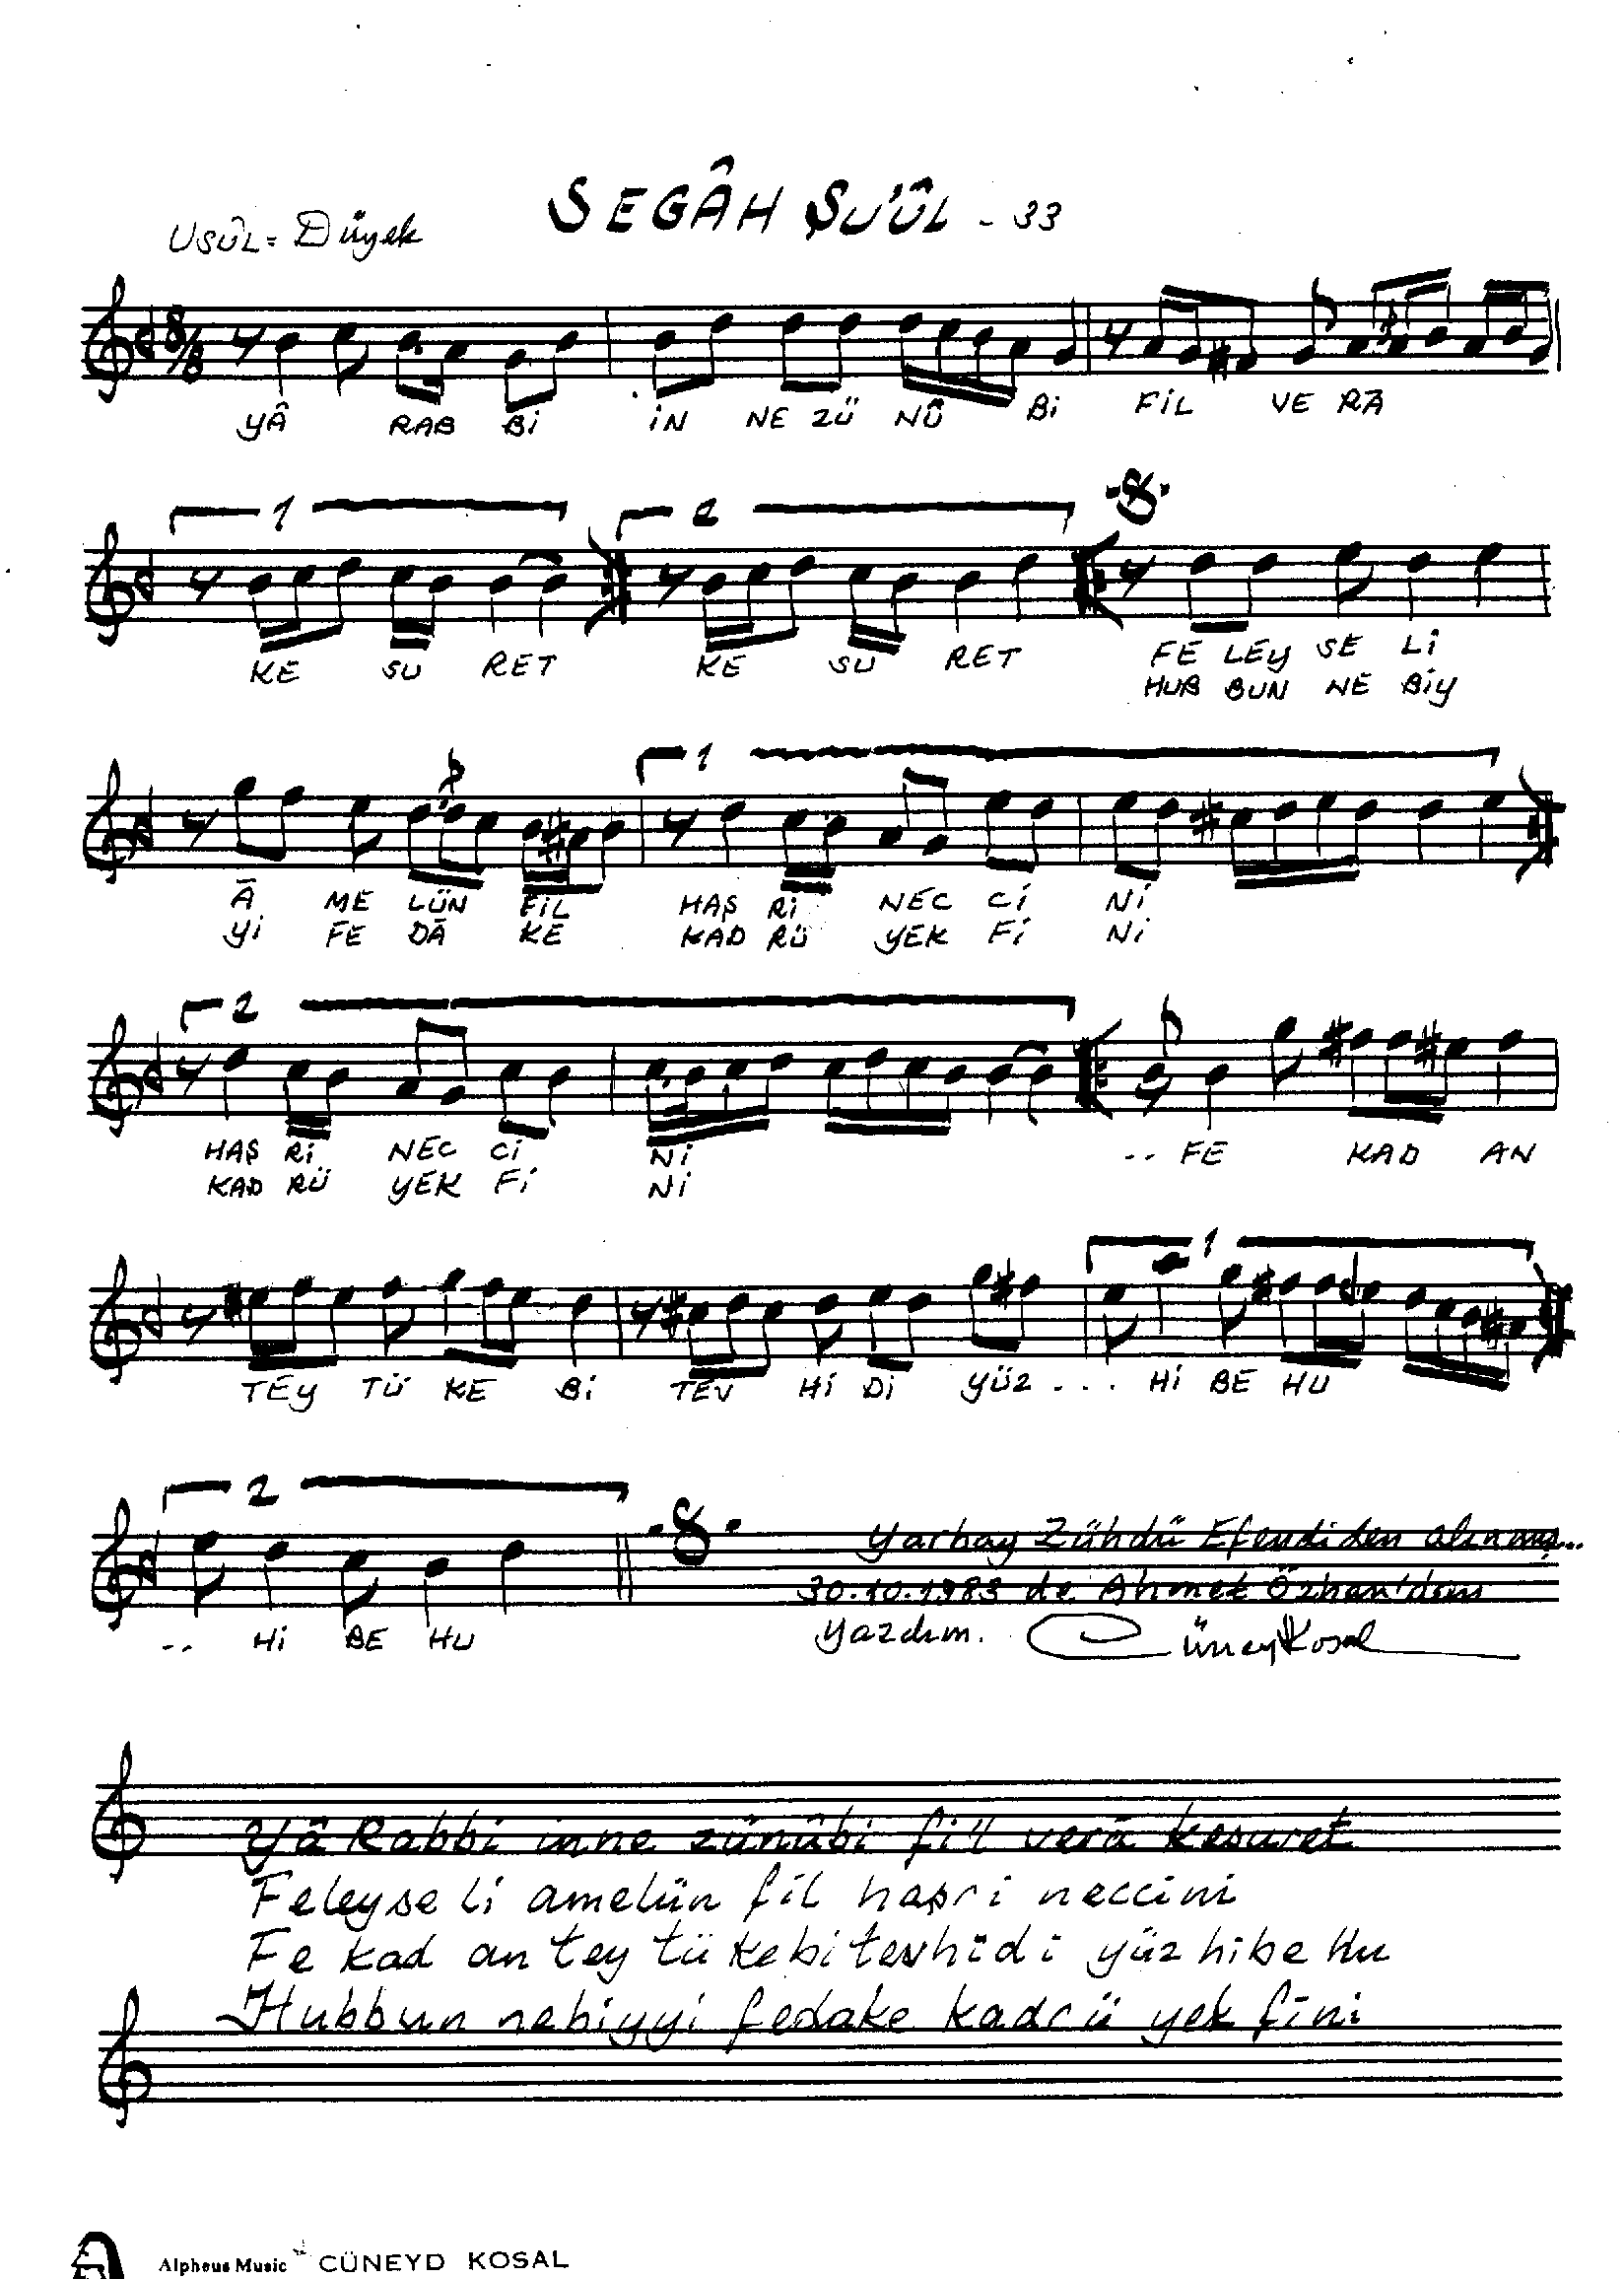 SEGÂH ŞU'ÛL - 33
USÛL = Düyek
8/8
YÂ RAB Bİ İN NE ZÜ NÛ Bİ FİL VE RÂ
1 2
KE SU RET KE SU RET FE LEY SE Lİ
HUB BUN NE BİY
1
Ā ME LÜN FİL HAŞ Rİ NEC Cİ Nİ
Yİ FE DĀ KE KAD RÜ YEK Fİ Nİ
2
HAŞ Rİ NEC Cİ Nİ -- FE KAD AN
KAD RÜ YEK Fİ Nİ
1
TEY TÜ KE Bİ TEV Hİ Dİ YÜZ ... Hİ BE HU
2
-- Hİ BE HU
Yarbay Zühdü Efendiden alınmış...
30.10.1983 de Ahmet Özhan'dan
yazdım. Cüneyd Kosal
Yâ Rabbi inne zünûbi fi'l verâ kesuret
Feleyse li amelün fil haşri neccini
Fe kad an tey tü kebi tevhidi yüz hibe hu
Hubbun nebiyyi fedake kadrü yek fini
Alpheus Music CÜNEYD KOSAL